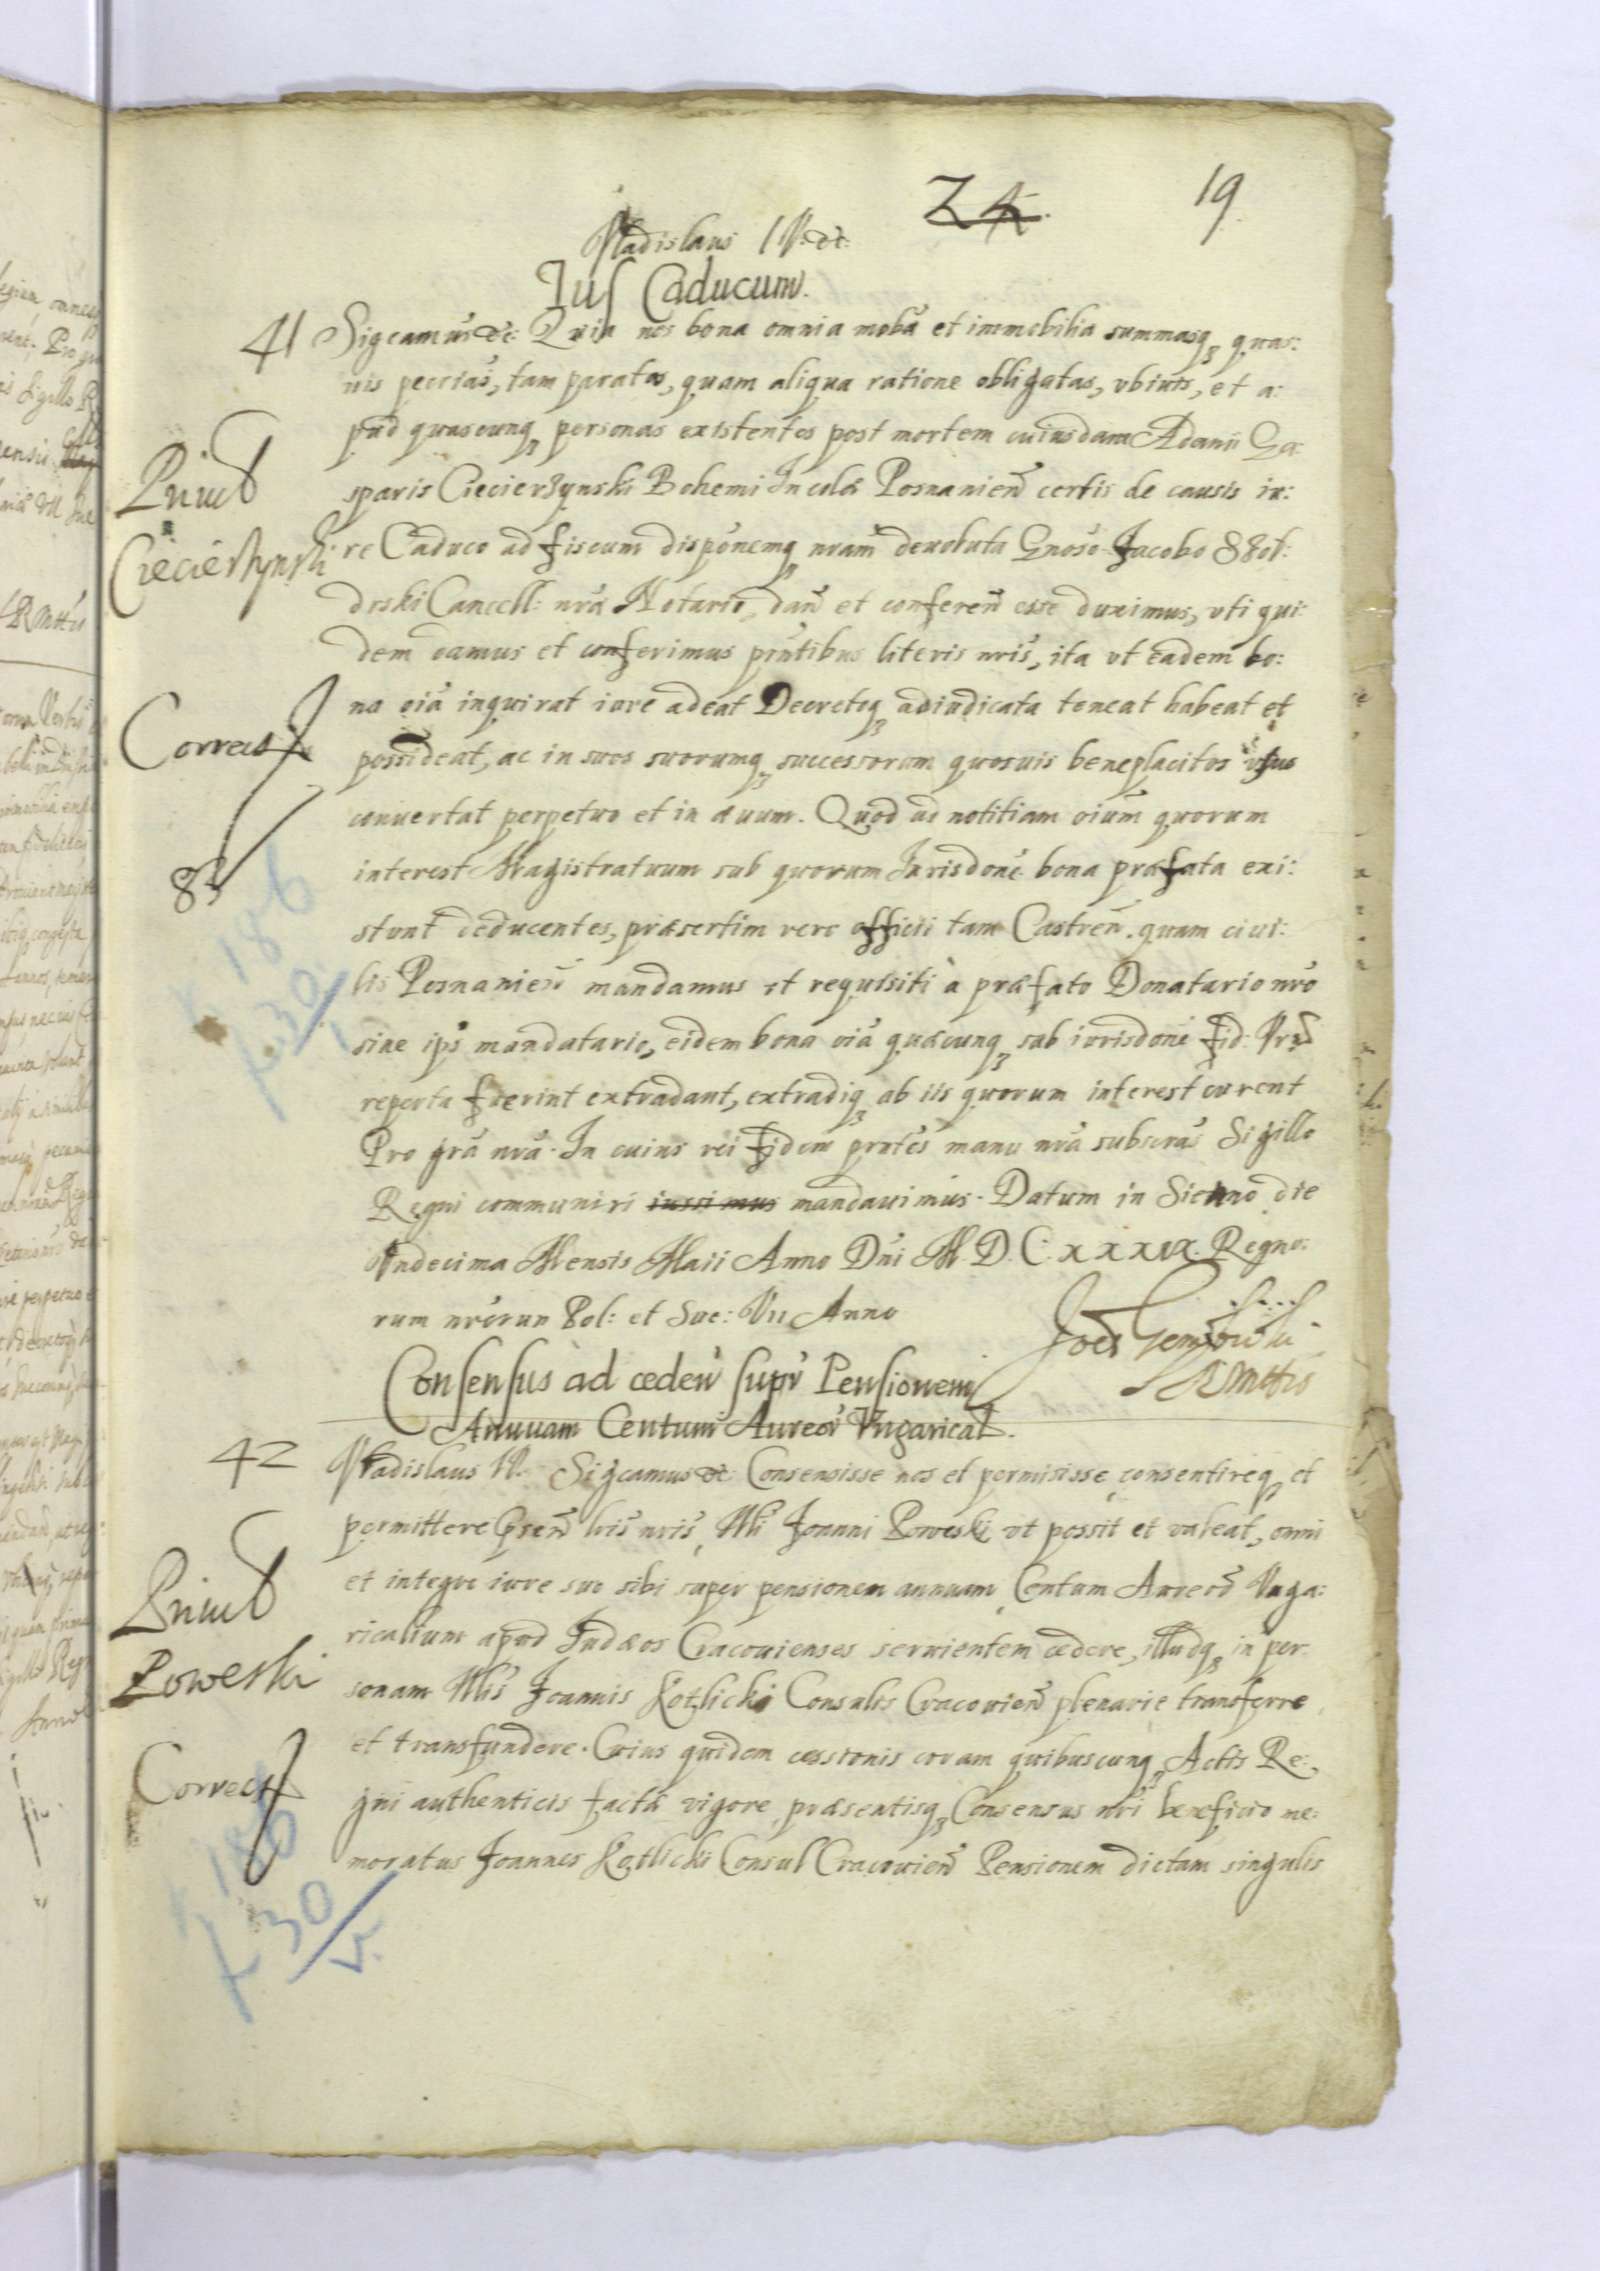 24. 19
Vladislaus IV. etc:
Jus Caducum.
41 Sigcamus etc: Quia nos bona omnia mobã et immobilia summasq, quas:
uis pecrias, tam paratas, quam aliqua ratione obligatas, vbiuis, et a:
pud quascunq, personas existentes post mortem cuiusdam Adami Ga:
sparis Ciecierzynski Bohemi Incolæ Posnanien certis de causis iu:
re Caduco ad fiscum disponemq nram deuoluta Gnoso Jacobo
Cancell: nræ Notario, dan et conferen esse duximus, vti qui:
dem damus et conferimus pntibus literis nris, ita vt eadem bo:
na oia inquirat iure adeat Decretoq, adiudicata teneat habeat et
possideat, ac in suos suorumq, successorum quosuis beneplacitos vsus
conuertat perpetuo et in æuum. Quod ad notitiam oium quorum
interest Magistratuum sub quorum Jurisdone bona præfata exi:
stunt deducentes, præsertim vero officii tam Castren. quam ciui:
lis Posnanien mandamus vt requisiti à præfato Donatario nro
siue ips mandatario, eidem bona oia quæcunq, sub iurisdone Fid: Vrã
reperta fuerint extradant, extradiq, ab iis quorum interest curent
Pro gra nra. In cuius rei fidem pntes manu nra subscras Sigillo
Regni communiri iussimus mandauimus. Datum in Sienno die
Vndecima Mensis Maii Anno Dni M.D.C.XXXIX. Regno:
rum nrorum Pol: et Sue: VII Anno
Priuil
Ciecierzynski
Correct
83
186
f 30
SRMttis
Consensus ad ceden supr Pensionem
Annuam Centum Aureor Vngarical.
42 Vladislaus IV. Sigcamus etc Consensisse nos et permisisse, consentireq, et
permittere Psen lris nris, Nbli Joanni Poweski vt possit et valeat, omni
et integro iure suo sibi super pensionem annuam Centum Aureor Vnga:
ricalium apud Judæos Cracouienses seruientem cedere, illudq, in per:
sonam Nblis Joannis Kotlicki Consulis Cracouien plenarie transferre
et transfundere. Cuius quidem cessionis coram quibuscunq, Actis Re:
gni authenticis factæ vigore, præsentisq, Consensus nri beneficio me:
moratus Joannes Kotlicki Consul Cracouien Pensionem dictam singulis
Priuil
Poweski
Correct
186
f 30
v.